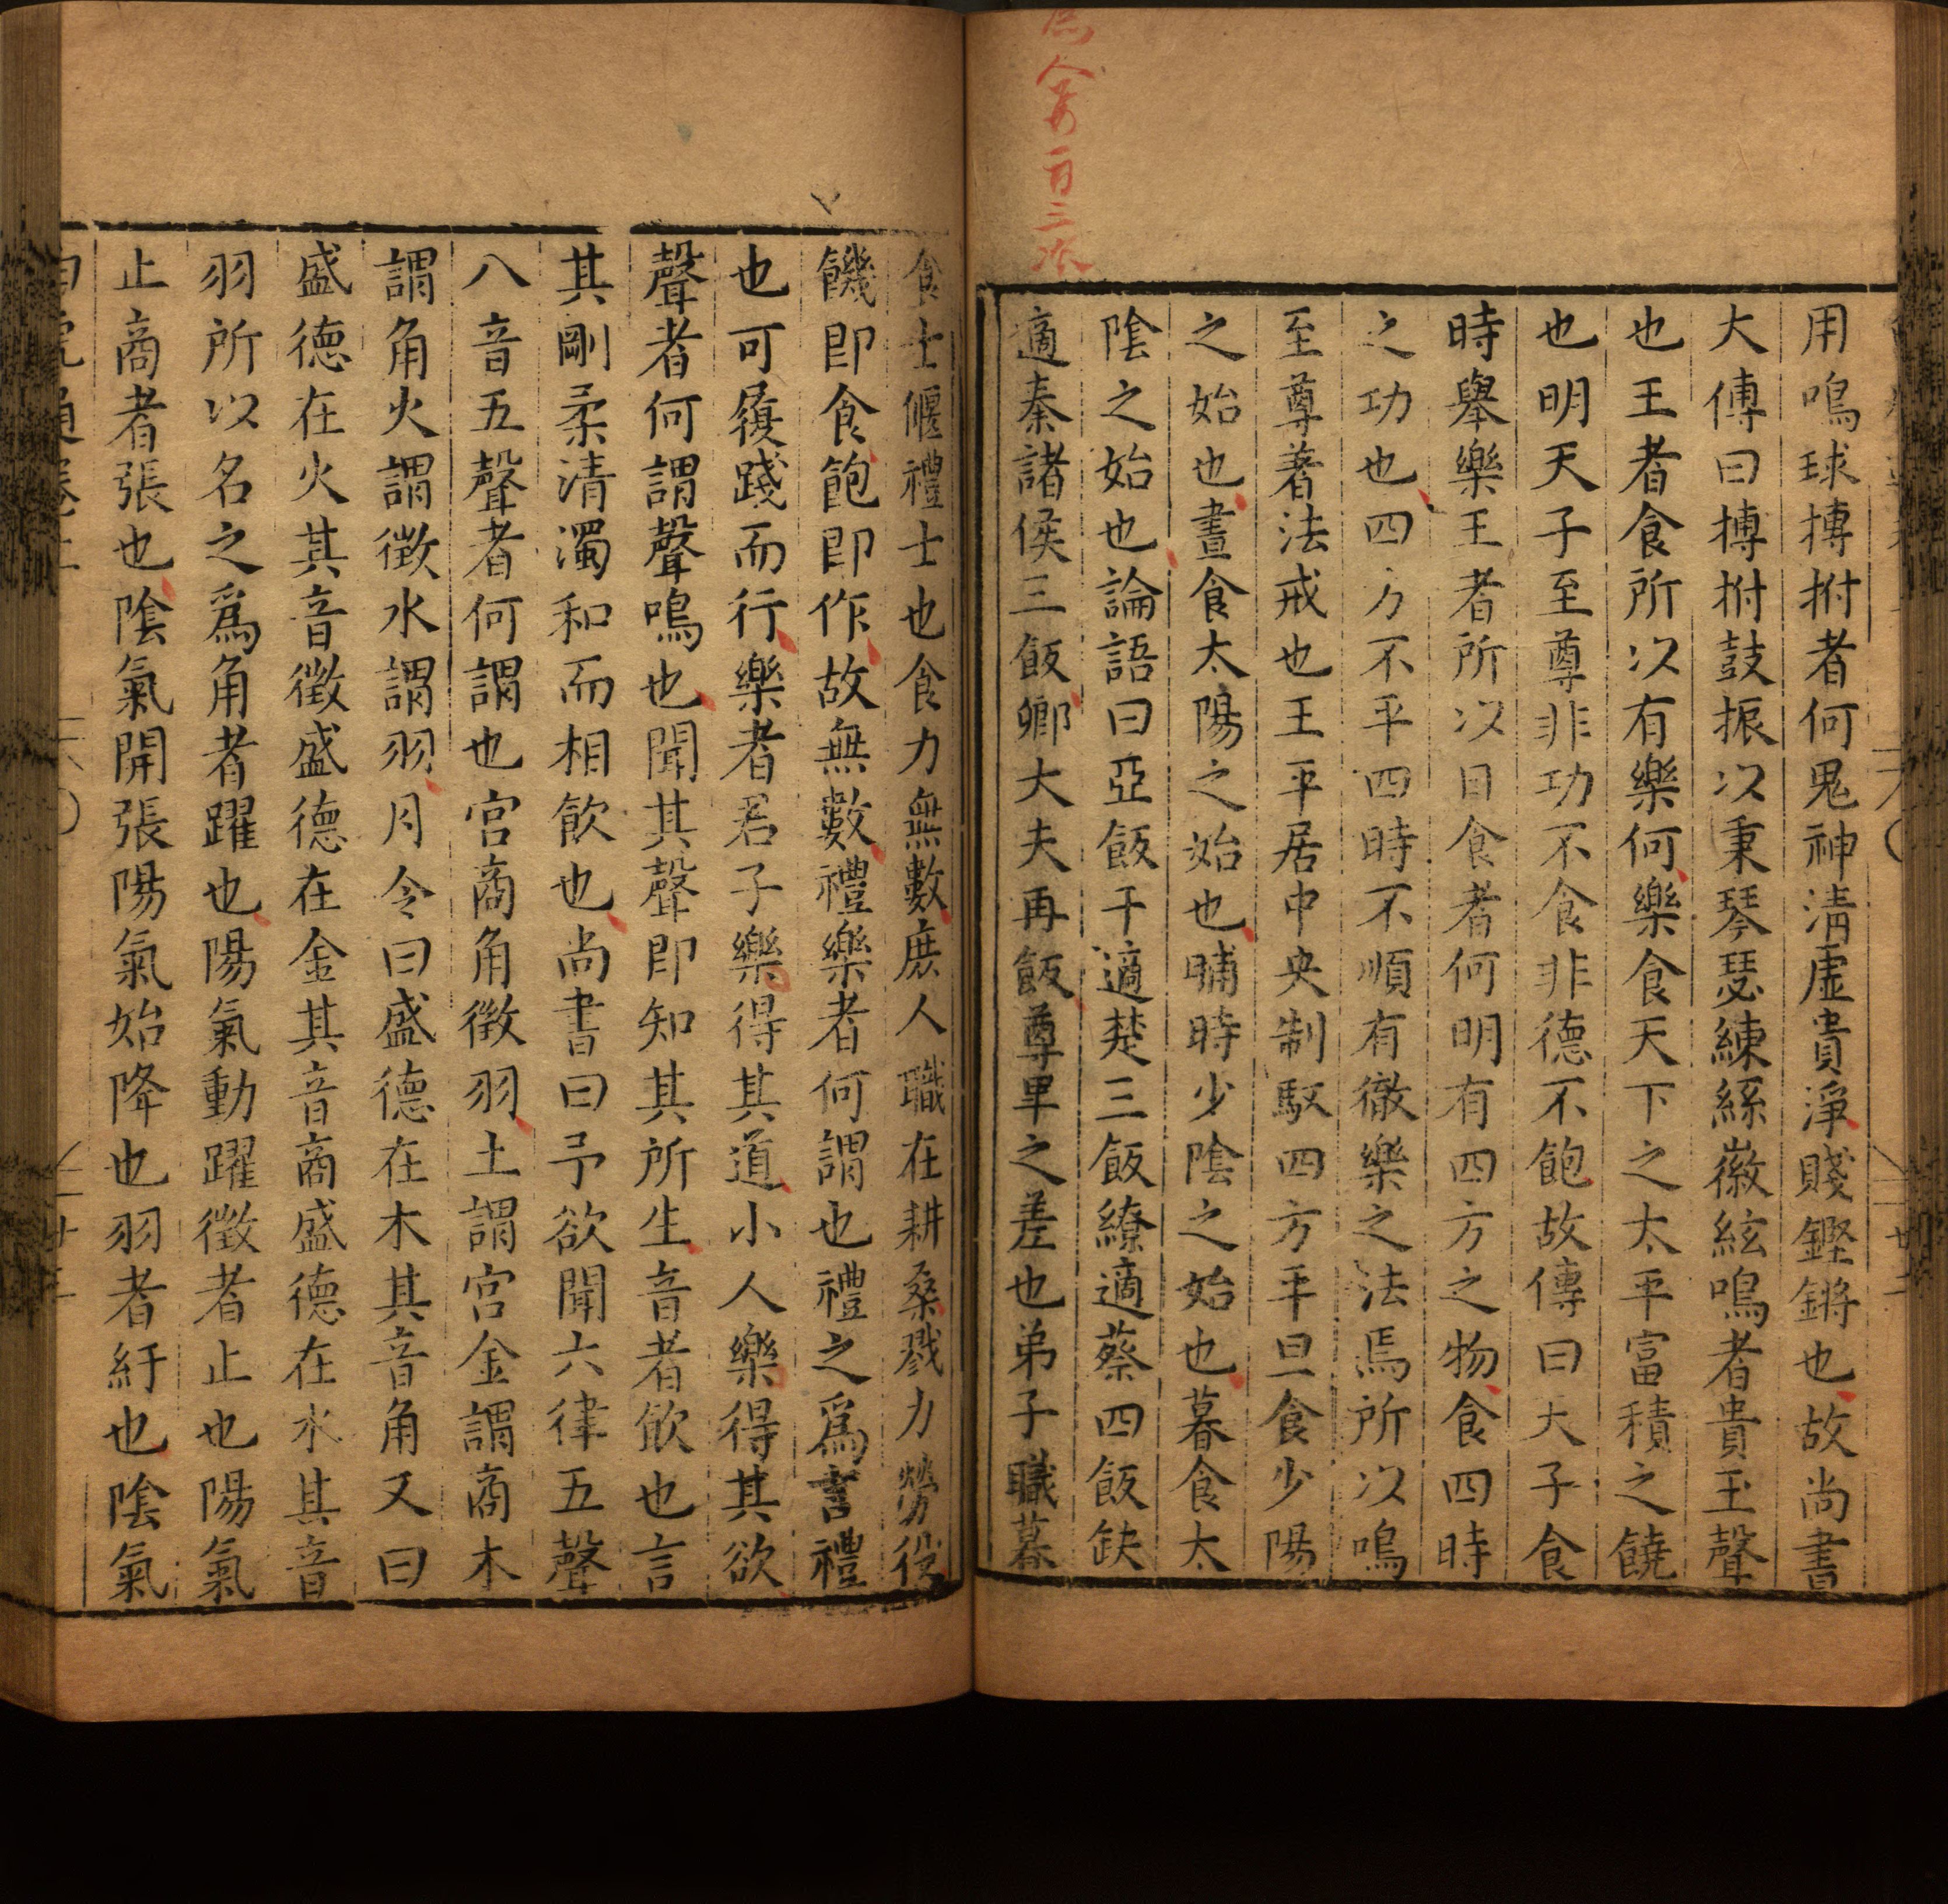 用鳴球搏拊者何鬼神清虛貴淨賤鏗鏘也故尚書
大傅曰搏拊鼓振以秉琴瑟練絲徽絃鳴者貴玉聲
也王者食所以有樂何樂食天下之太平富積之饒
也明天子至尊非功不食非德不飽故傳曰天子食
時舉樂王者所以日食者何明有四方之物食四時
之功也四方不平四時不順有徹樂之法焉所以鳴
至尊著法戒也王平居中央制馭四方平旦食少陽
之始也晝食太陽之始也晡時少陰之始也暮食太
陰之始也論語曰亞飯干適楚三飯繚適蔡四飯缺
適秦諸侯三飯卿大夫再飯尊畢之差也弟子職暮
食士偃禮士也食力無數庶人職在耕桑戮力勞役
饑即食飽即作故無數禮樂者何謂也禮之爲言禮
也可履踐而行樂者君子樂得其道小人樂得其欲
聲者何謂聲鳴也聞其聲即知其所生音者飮也言
其剛柔清濁和而相飲也尚書曰予欲聞六律五聲
八音五聲者何謂也宮商角徵羽土謂宮金謂商木
謂角火謂徵水謂羽月令曰盛德在木其音角又曰
盛德在火其音徵盛德在金其音商盛德在水其音
羽所以名之爲角者躍也陽氣動躍徵者止也陽氣
止商者張也陰氣開張陽氣始降也羽者紆也陰氣